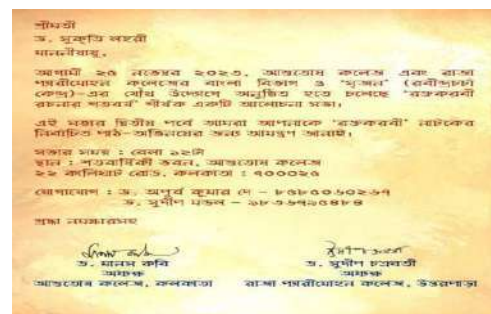 শ্রীমতী
ড. সুকৃতি লহরী
মাননীয়াসু,
আগামী ২৫ নভেম্বর ২০২৩, আশুতোষ কলেজ এবং রাজা
প্যারীমোহন কলেজের বাংলা বিভাগ ও 'সৃজন' (রবীন্দ্রচর্চা
কেন্দ্র)-এর যৌথ উদ্যোগে অনুষ্ঠিত হতে চলেছে 'রক্তকরবী
রচনার শতবর্ষ' শীর্ষক একটি আলোচনা সভা।
এই সভার দ্বিতীয় পর্বে আমরা আপনাকে 'রক্তকরবী' নাটকের
নির্বাচিত পাঠ-অভিনয়ের জন্য আমন্ত্রণ জানাই।
সভার সময় : বেলা ১২টা
স্থান : শতবার্ষিকী ভবন, আশুতোষ কলেজ
২২ কালিঘাট রোড, কলকাতা : ৭০০০২৬
যোগাযোগ : ড. অপূর্ব কুমার দে –
ড. সুদীপ মণ্ডল –
শ্রদ্ধা নমস্কারসহ
ড. মানস কবি
ড. সুদীপ চক্রবর্তী
অধ্যক্ষ
অধ্যক্ষ
আশুতোষ কলেজ, কলকাতা
রাজা প্যারীমোহন কলেজ, উত্তরপাড়া